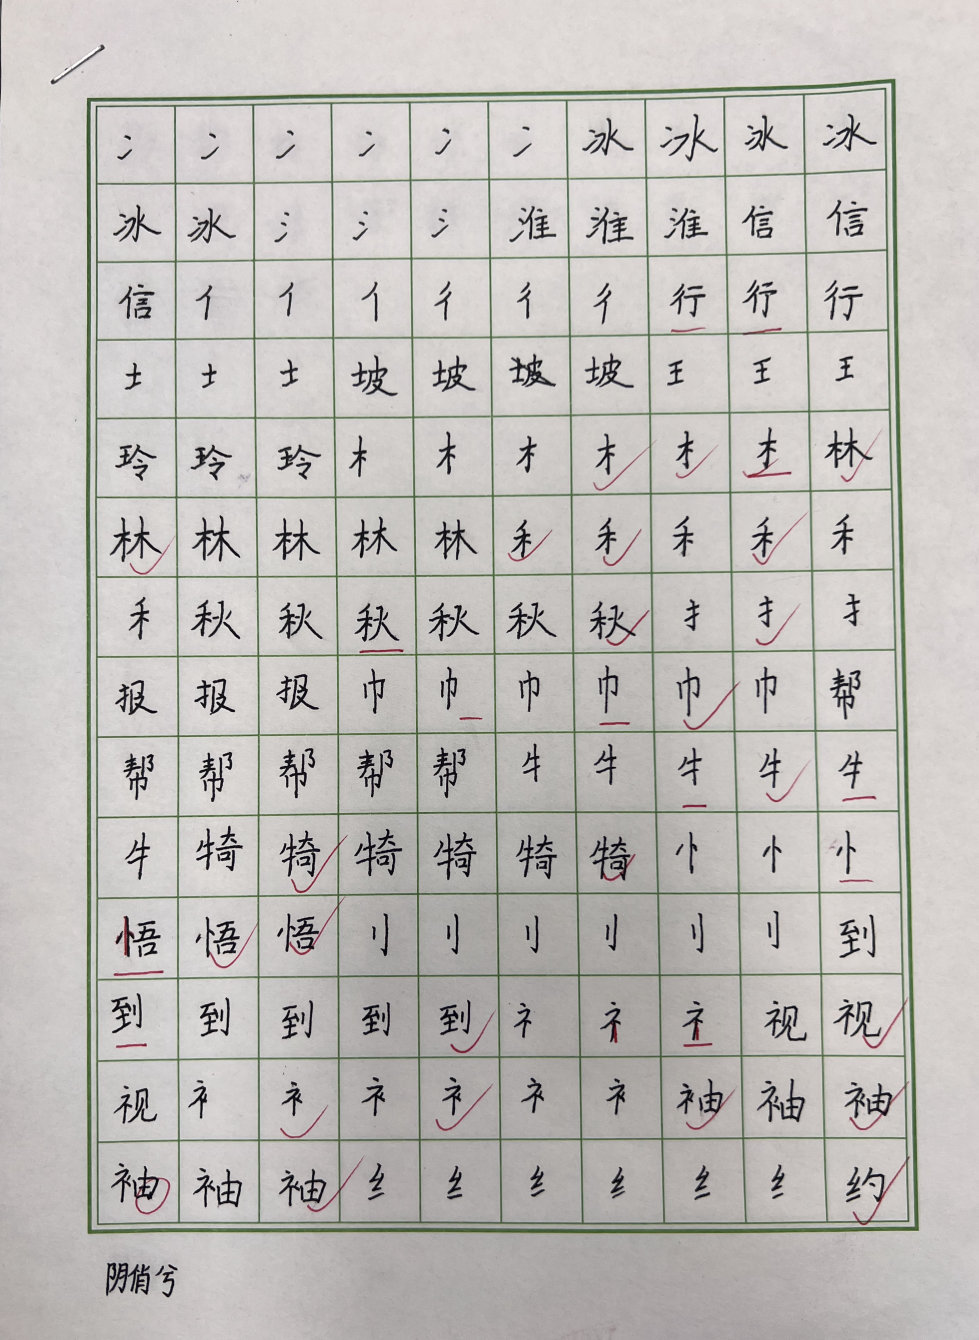 冫冫冫冫冫冫冰冰冰冰
冰冰氵氵氵淮淮淮信信
信亻亻亻彳彳彳行行行
土土土坡坡坡坡王王王
玲玲玲木木木木木木林
林林林林林禾禾禾禾禾
禾秋秋秋秋秋秋扌扌扌
报报报巾巾巾巾巾巾帮
帮帮帮帮帮牜牜牜牜牜
牜犄犄犄犄犄犄忄忄忄
悟悟悟刂刂刂刂刂刂到
到到到到到礻礻礻视视
视衤衤衤衤衤衤袖袖袖
袖袖袖纟纟纟纟纟纟约
阴俏兮